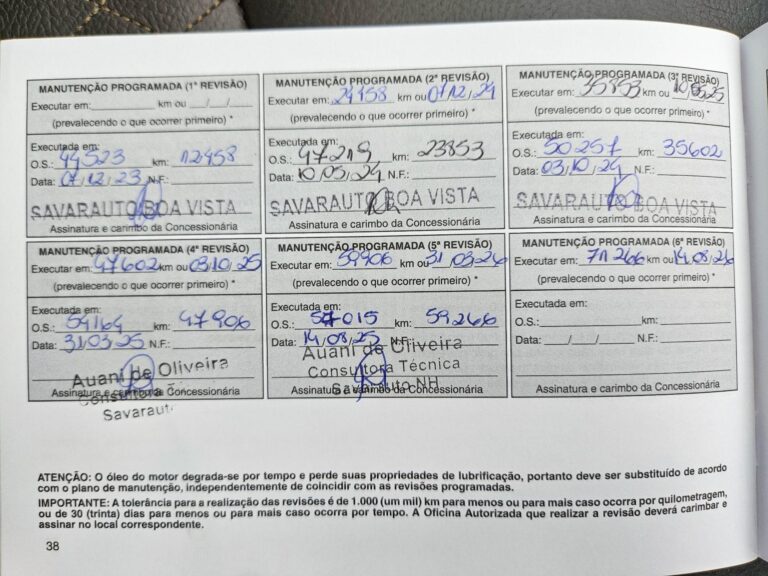 MANUTENÇÃO PROGRAMADA (1ª REVISÃO)
Executar em: km ou / /
(prevalecendo o que ocorrer primeiro) *
Executada em:
O.S.: 44523 km: 12458
Data: 07/12/23 N.F.:
SAVARAUTO BOA VISTA
Assinatura e carimbo da Concessionária
MANUTENÇÃO PROGRAMADA (2ª REVISÃO)
Executar em: 24458 km ou 07/12/24
(prevalecendo o que ocorrer primeiro) *
Executada em:
O.S.: 47219 km: 23853
Data: 10/05/24 N.F.:
SAVARAUTO BOA VISTA
Assinatura e carimbo da Concessionária
MANUTENÇÃO PROGRAMADA (3ª REVISÃO)
Executar em: 35853 km ou 10/05/25
(prevalecendo o que ocorrer primeiro) *
Executada em:
O.S.: 50257 km: 35602
Data: 03/10/24 N.F.:
SAVARAUTO BOA VISTA
Assinatura e carimbo da Concessionária
MANUTENÇÃO PROGRAMADA (4ª REVISÃO)
Executar em: 47602 km ou 03/10/25
(prevalecendo o que ocorrer primeiro) *
Executada em:
O.S.: 54164 km: 47906
Data: 31/03/25 N.F.:
Auani de Oliveira
Consultora
Assinatura e carimbo da Concessionária
Savarauto
MANUTENÇÃO PROGRAMADA (5ª REVISÃO)
Executar em: 59906 km ou 31/03/26
(prevalecendo o que ocorrer primeiro) *
Executada em:
O.S.: 57015 km: 59266
Data: 14/08/25 N.F.
Auani de Oliveira
Consultora Técnica
Savarauto NH
Assinatura e carimbo da Concessionária
MANUTENÇÃO PROGRAMADA (6ª REVISÃO)
Executar em: 71266 km ou 14/08/26
(prevalecendo o que ocorrer primeiro) *
Executada em:
O.S.: km:
Data: / / N.F.:
Assinatura e carimbo da Concessionária
ATENÇÃO: O óleo do motor degrada-se por tempo e perde suas propriedades de lubrificação, portanto deve ser substituído de acordo
com o plano de manutenção, independentemente de coincidir com as revisões programadas.
IMPORTANTE: A tolerância para a realização das revisões é de 1.000 (um mil) km para menos ou para mais caso ocorra por quilometragem,
ou de 30 (trinta) dias para menos ou para mais caso ocorra por tempo. A Oficina Autorizada que realizar a revisão deverá carimbar e
assinar no local correspondente.
38